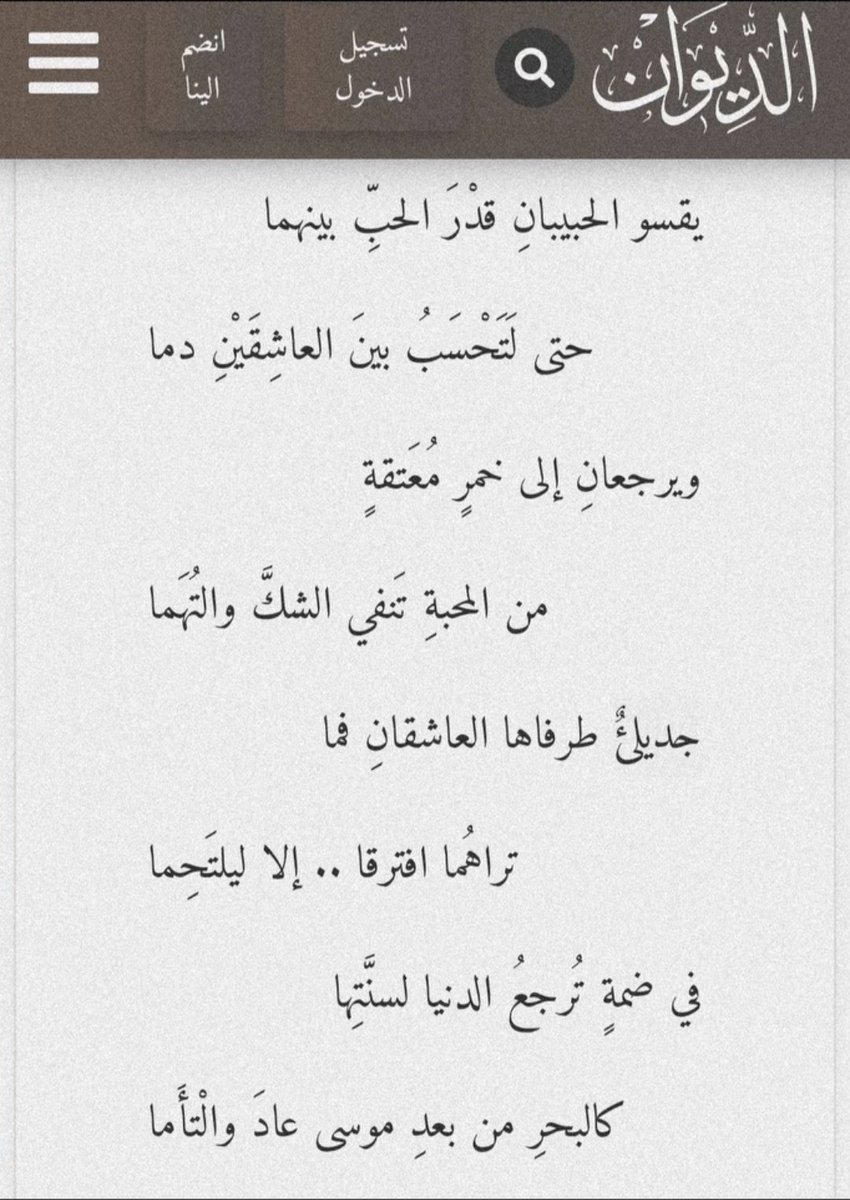 الدِّيوَانْ
تسجيل الدخول
انضم الينا
يقسو الحبيبانِ قدْرَ الحبِّ بينهما
حتى لَتَحْسَبُ بينَ العاشِقَيْنِ دما
ويرجعانِ إلى خمرٍ مُعَتقةٍ
من المحبةِ تَنفي الشكَّ والتُهَما
جديلئٌ طرفاها العاشقانِ فما
تراهُما افترقا .. إلا ليلتَحِما
في ضمةٍ تُرجعُ الدنيا لسنَّتِها
كالبحرِ من بعدِ موسى عادَ والْتأَما